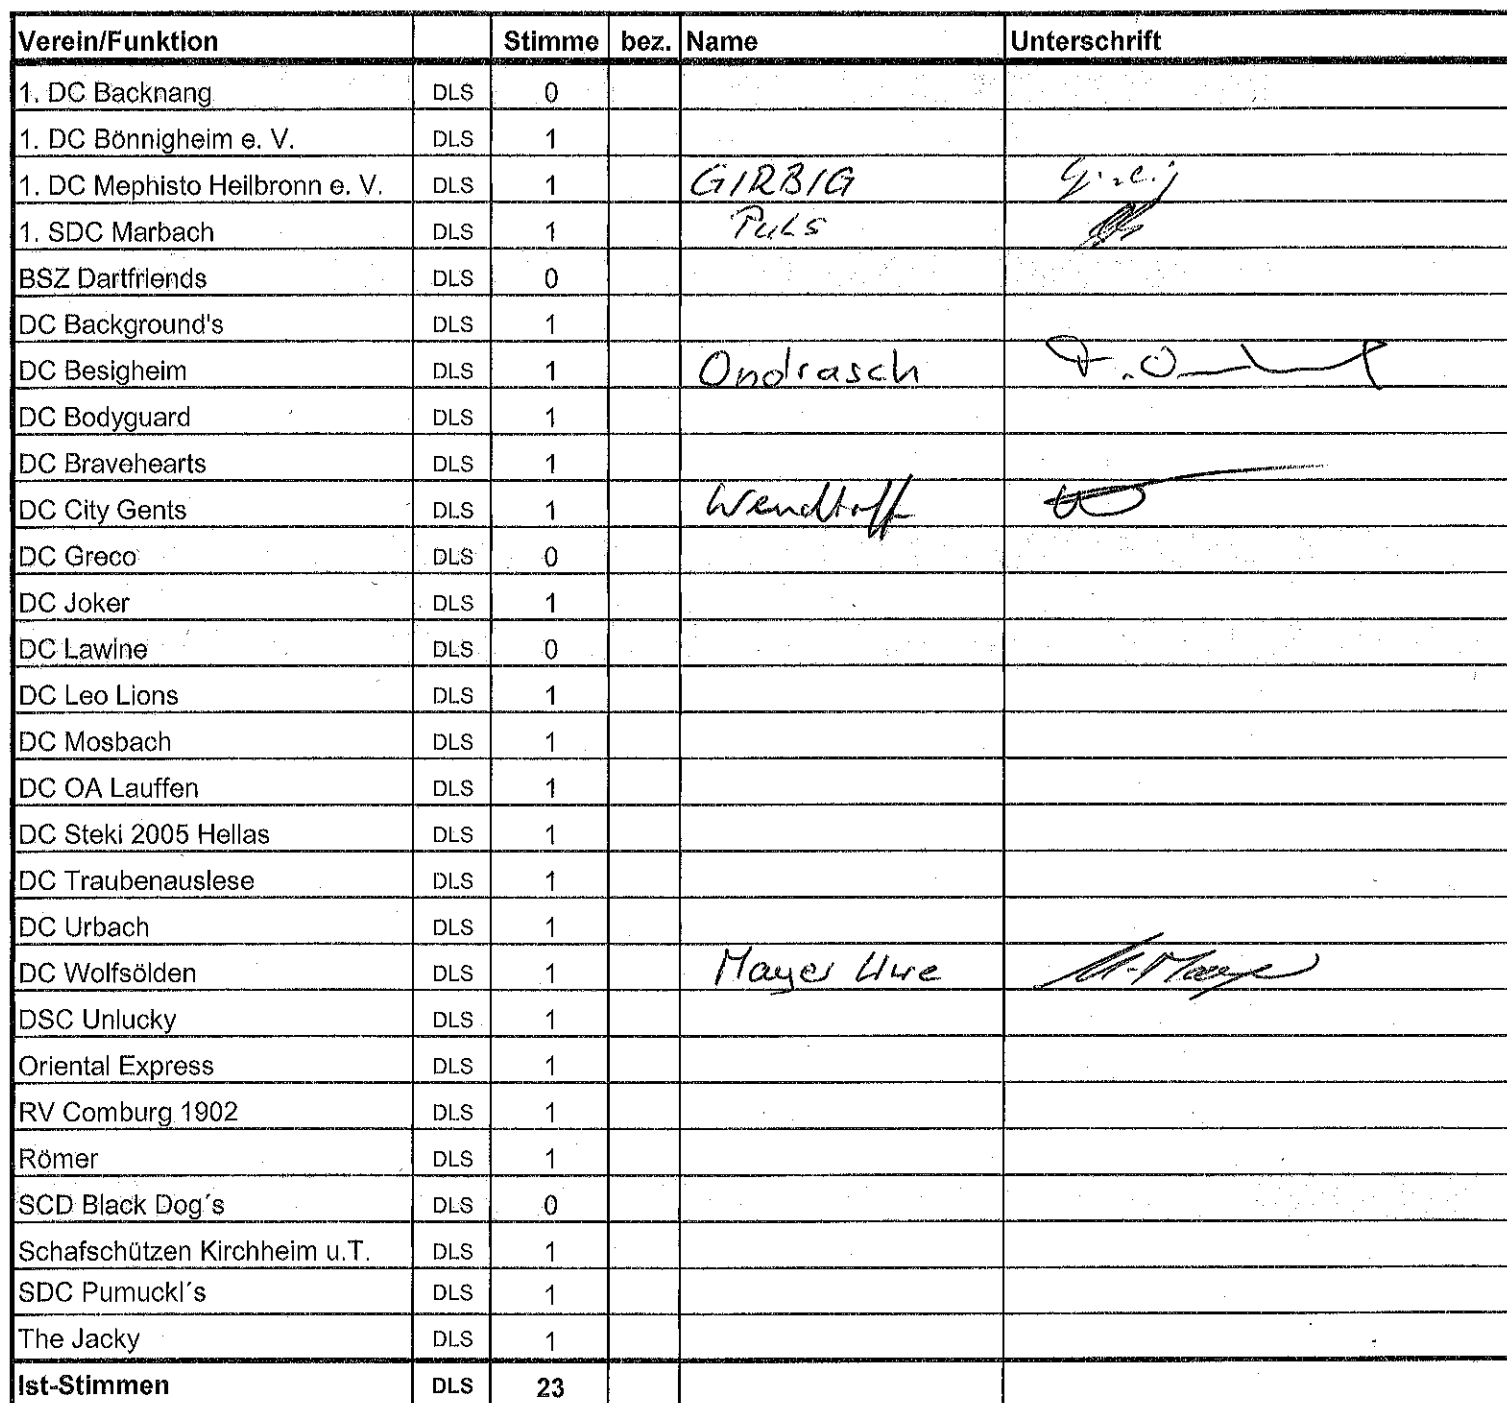 Verein/Funktion Stimme bez. Name Unterschrift
1. DC Backnang DLS 0
1. DC Bönnigheim e. V. DLS 1
1. DC Mephisto Heilbronn e. V. DLS 1 GIRBIG
1. SDC Marbach DLS 1 Puls
BSZ Dartfriends DLS 0
DC Background's DLS 1
DC Besigheim DLS 1 Ondrasch
DC Bodyguard DLS 1
DC Bravehearts DLS 1
DC City Gents DLS 1
DC Greco DLS 0
DC Joker DLS 1
DC Lawine DLS 0
DC Leo Lions DLS 1
DC Mosbach DLS 1
DC OA Lauffen DLS 1
DC Steki 2005 Hellas DLS 1
DC Traubenauslese DLS 1
DC Urbach DLS 1
DC Wolfsölden DLS 1 Mayer Uwe U. Mayer
DSC Unlucky DLS 1
Oriental Express DLS 1
RV Comburg 1902 DLS 1
Römer DLS 1
SCD Black Dog´s DLS 0
Schafschützen Kirchheim u.T. DLS 1
SDC Pumuckl´s DLS 1
The Jacky DLS 1
Ist-Stimmen DLS 23